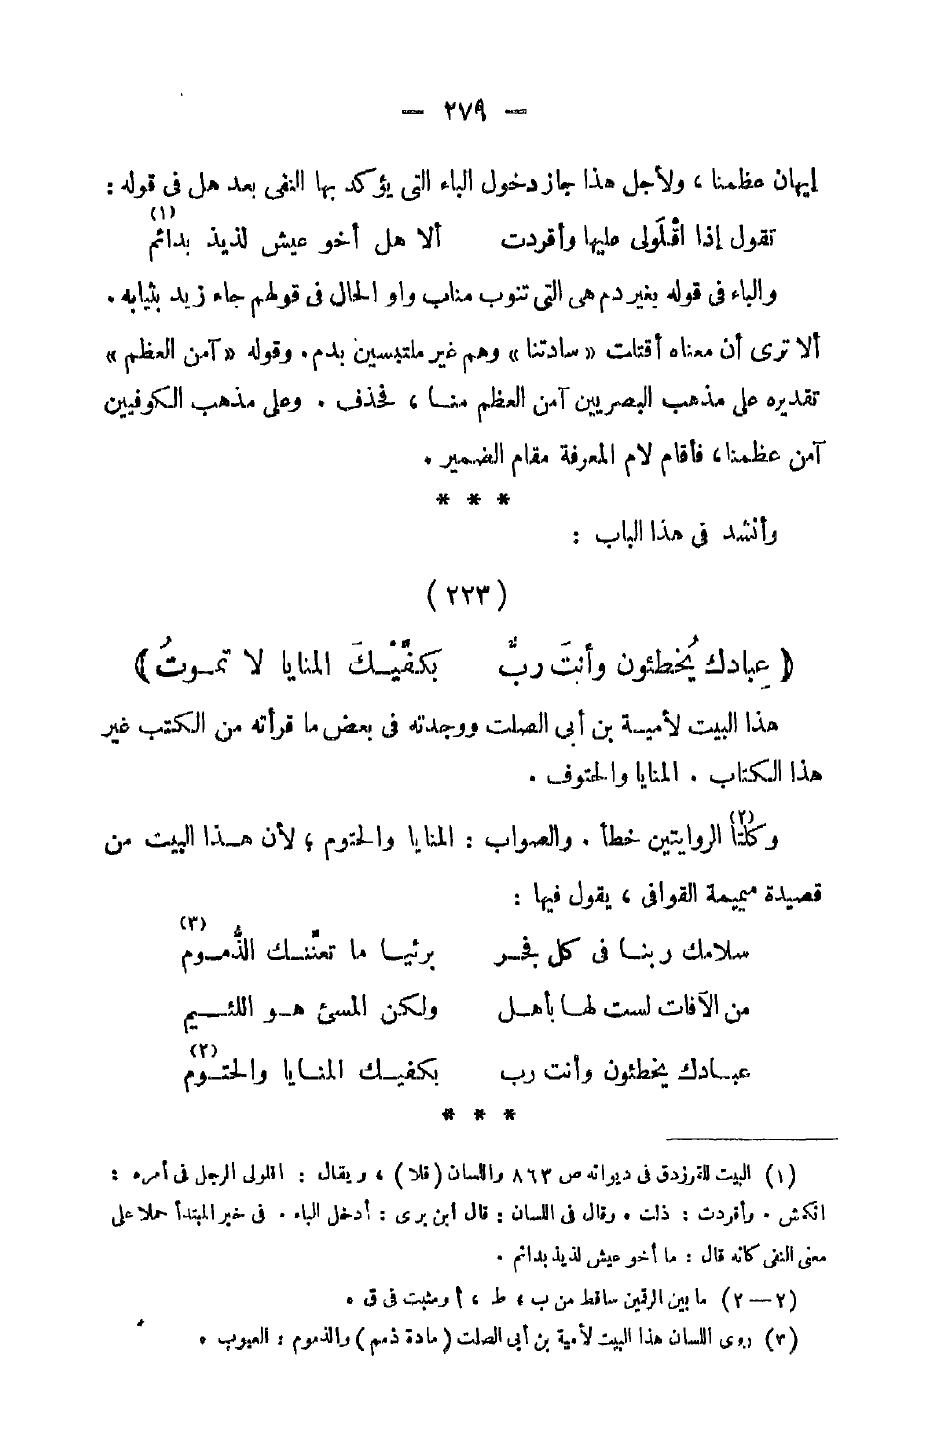 — ٢٧٩ —
إيهان عظمنا ، ولأجل هذا جاز دخول الباء التى يؤكد بها النفى بعد هل فى قوله :
تقول إذا اقْلَولى عليها وأقردت    ألا هل أخو عيش لذيذ بدائم (١)
والباء فى قوله بغير دم هى التى تنوب مناب واو الحال فى قولهم جاء زيد بثيابه .
ألا ترى أن معناه أقتلت « سادتنا » وهم غير ملتبسين بدم . وقوله « آمن العظم »
تقديره على مذهب البصريين آمن العظم منا ، فحذف . وعلى مذهب الكوفيين
آمن عظمنا ، فأقام لام المعرفة مقام الضمير .
* * *
وأنشد فى هذا الباب :
( ٢٢٣ )
( عِبادك يُخطئون وأنتَ ربٌّ    بكفَّيْكَ المنايا لا تموتُ )
هذا البيت لأمية بن أبى الصلت ووجدته فى بعض ما قرأته من الكتب غير
هذا الكتاب . المنايا والحتوف .
وكلتا (٢) الروايتين خطأ . والصواب : المنايا والحتوم ؛ لأن هذا البيت من
قصيدة ميمية القوافى ، يقول فيها :
سلامك ربنا فى كل فجر    بريئا ما تعنَّتك الذُّموم (٣)
من الآفات لست لها بأهل    ولكن المسئ هو اللئيم
عبادك يخطئون وأنت رب    بكفيك المنايا والحتوم (٢)
* * *
(١) البيت للفرزدق فى ديوانه ص ٨٦٣ واللسان ( قلا ) ، ويقال : اقلولى الرجل فى أمره :
انكش . وأقردت : ذلت . وقال فى اللسان : قال ابن برى : أدخل الباء . فى خبر المبتدأ حملا على
معنى النفى كانه قال : ما أخو عيش لذيذ بدائم .
(٢—٢) ما بين الرقمين ساقط من ب ، ط ، أ ومثبت فى ق .
(٣) روى اللسان هذا البيت لأمية بن أبى الصلت ( مادة ذمم ) والذموم : العيوب .